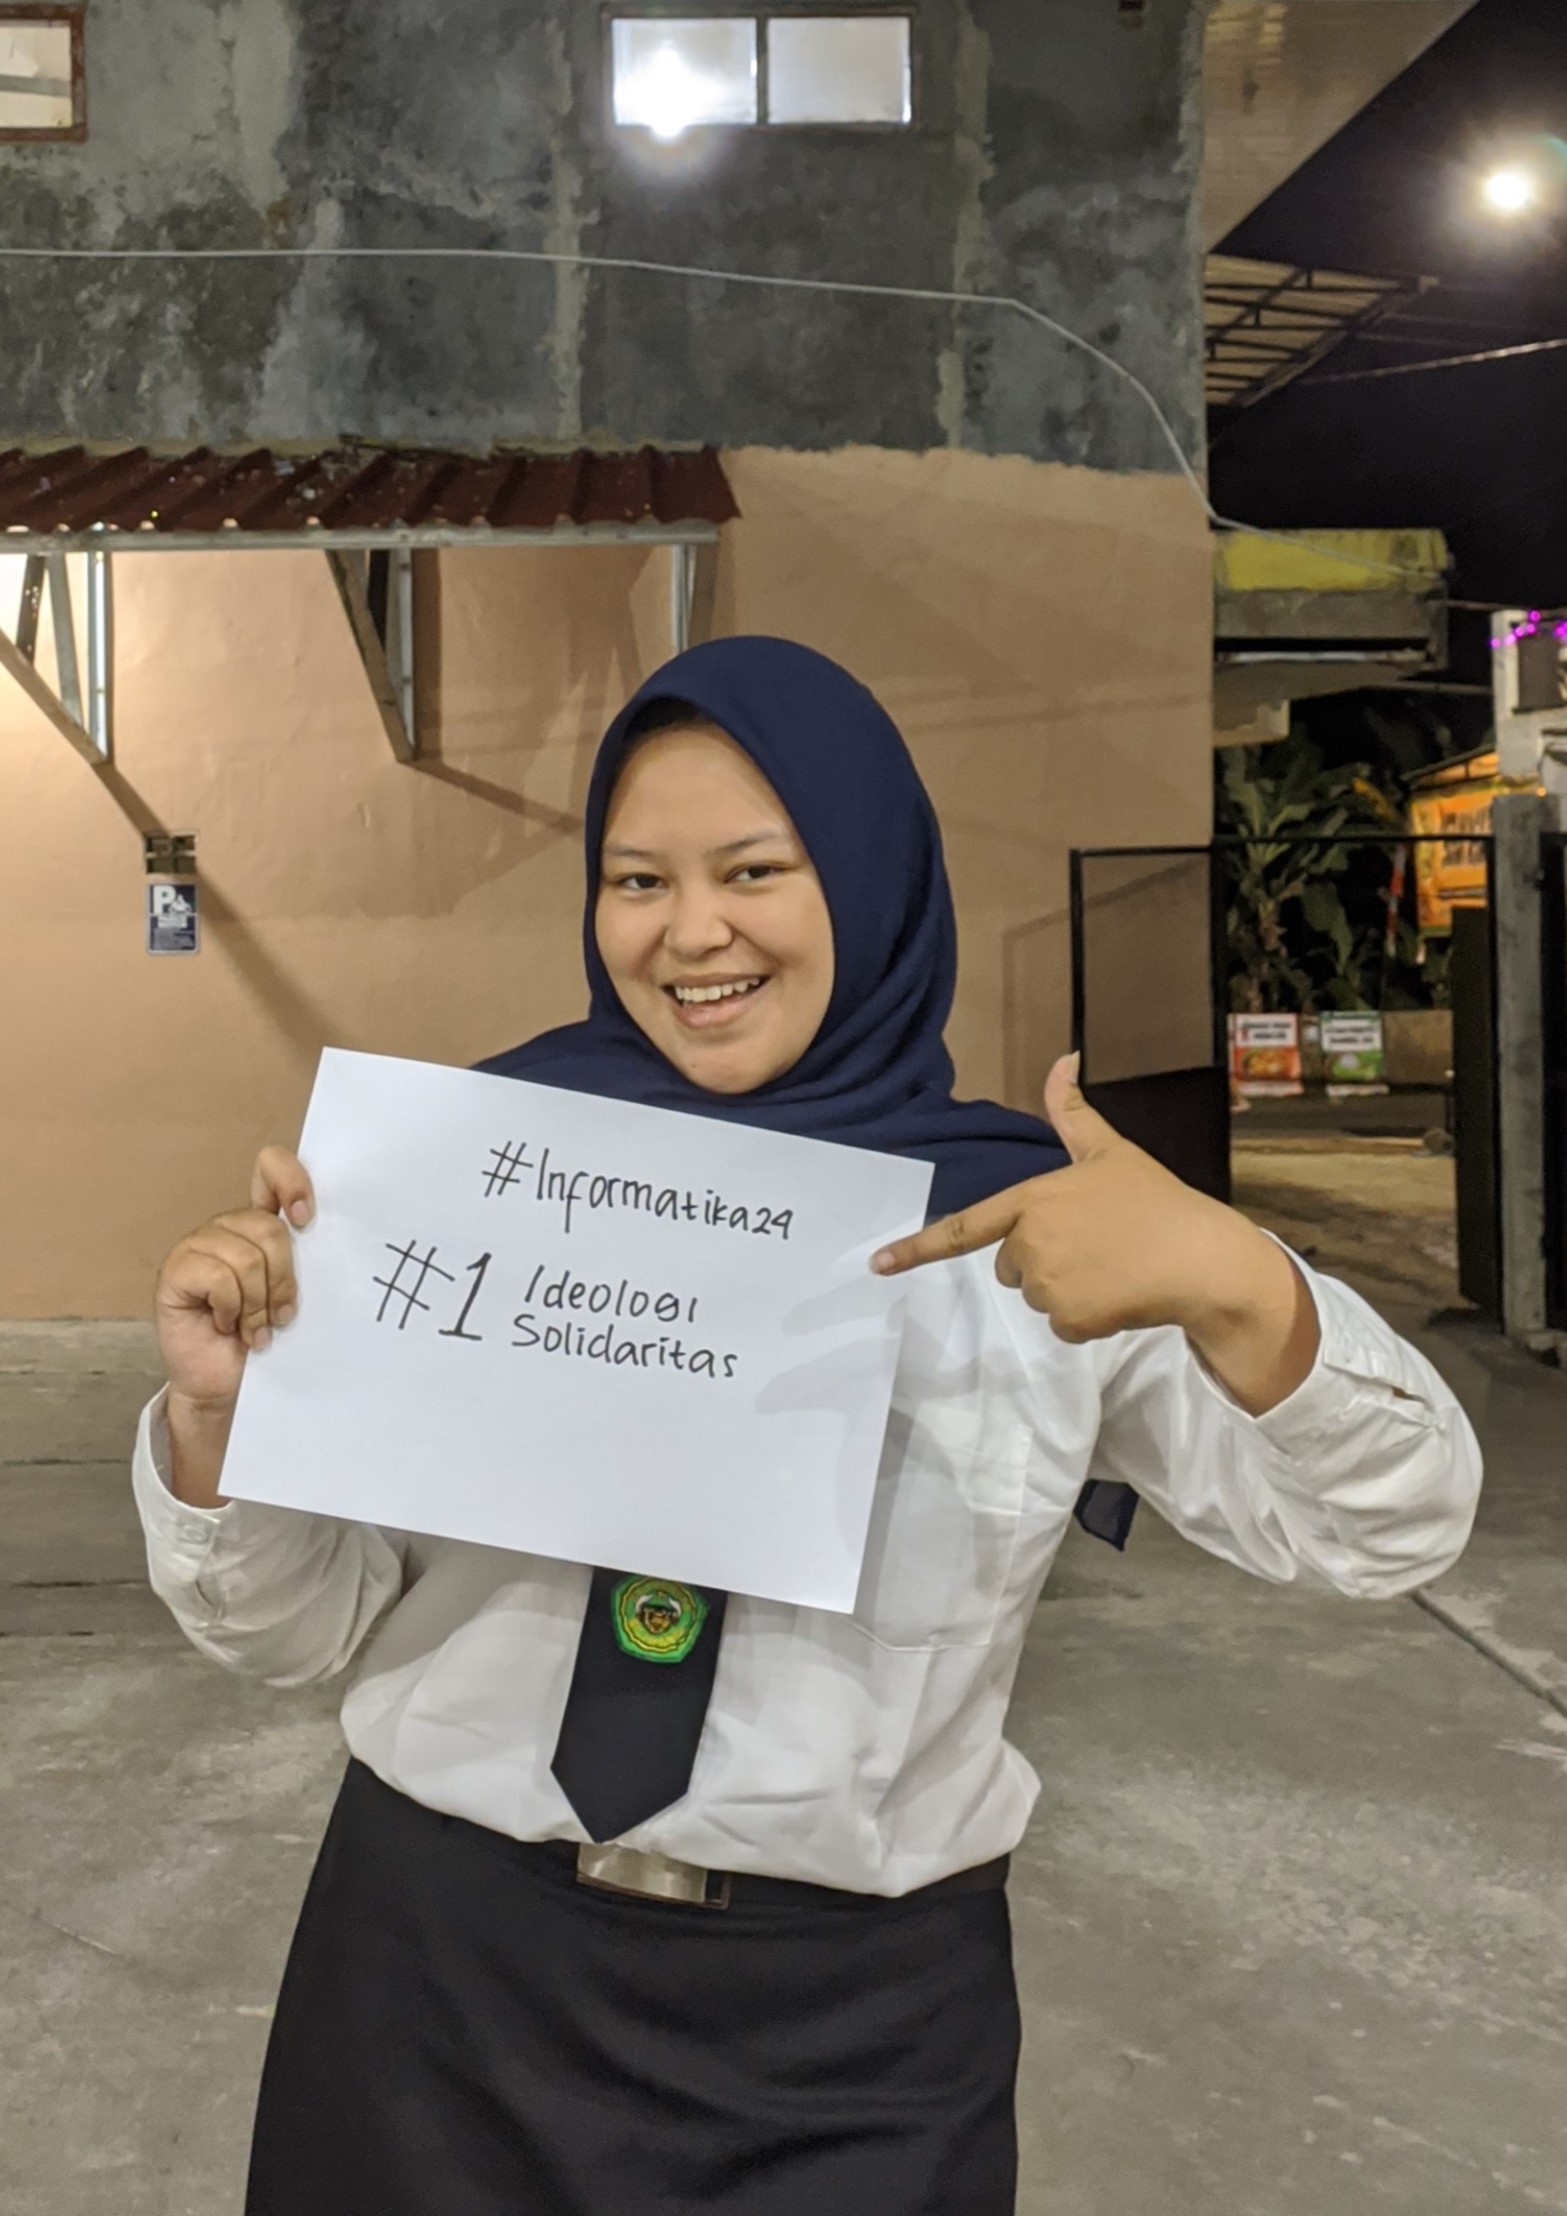 #Informatika24
#1 Ideologi
Solidaritas
P